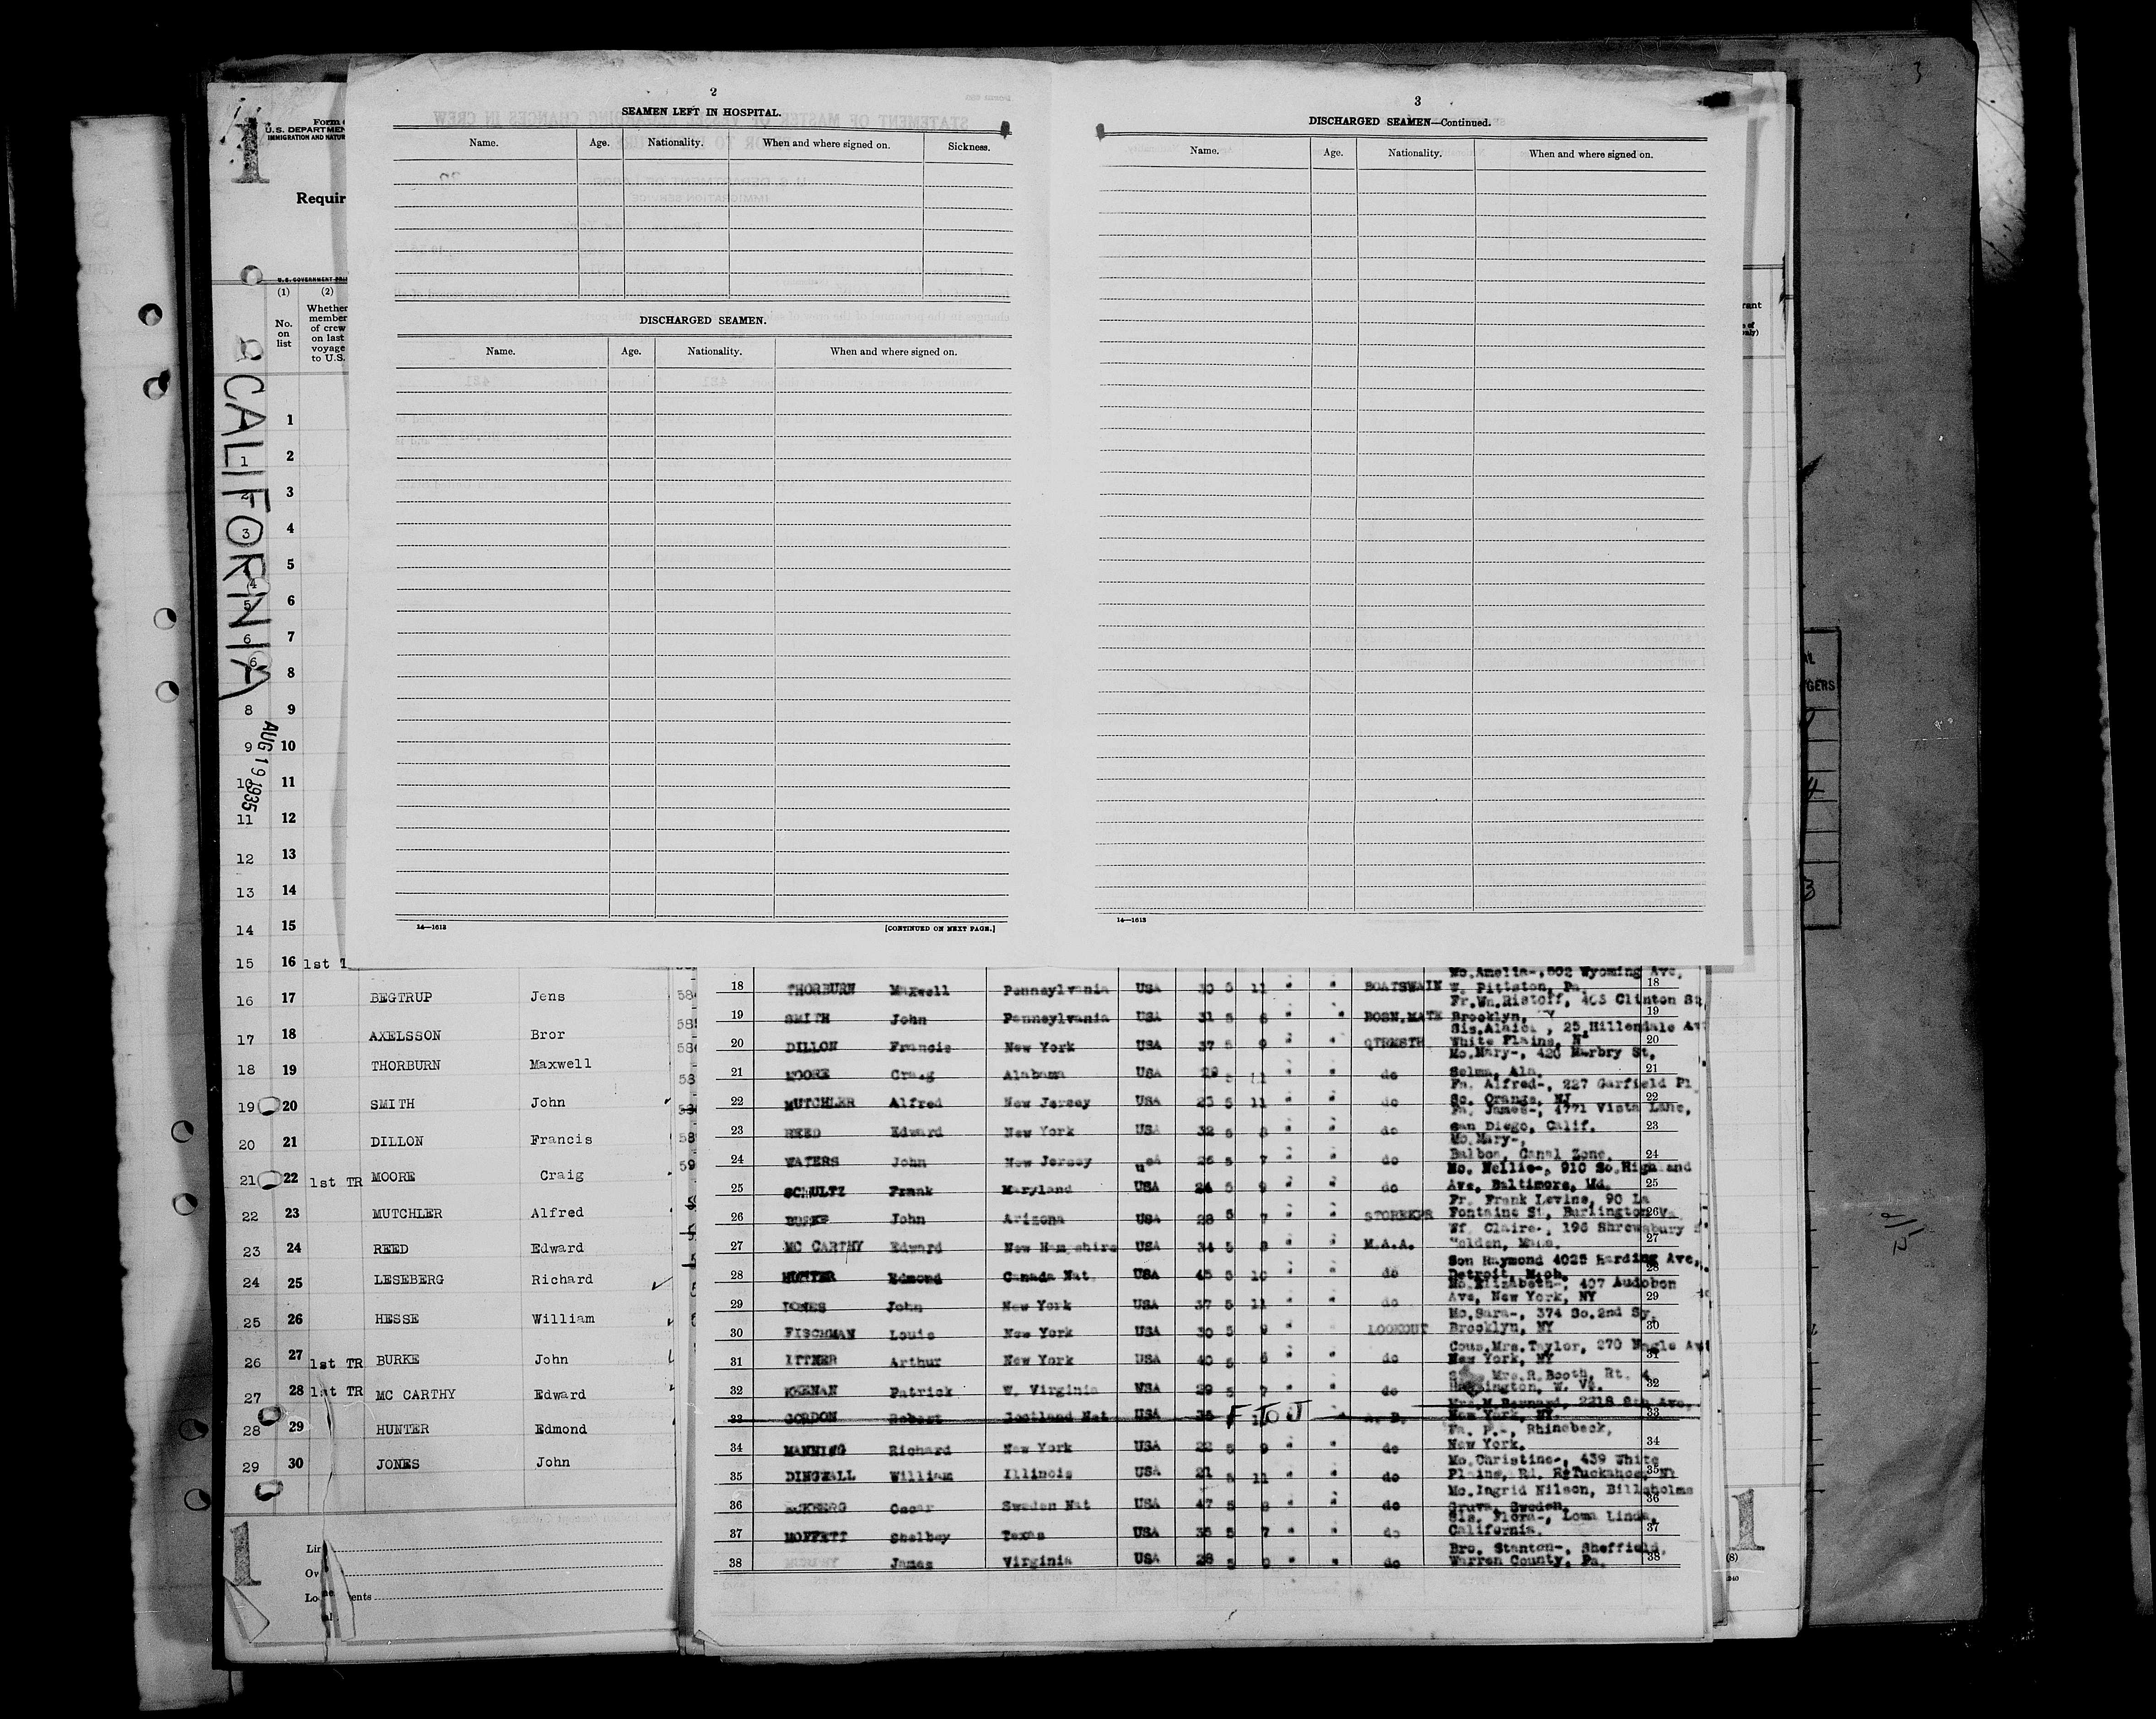 2
SEAMEN LEFT IN HOSPITAL.
Name. Age. Nationality. When and where signed on. Sickness.
DISCHARGED SEAMEN.
Name. Age. Nationality. When and where signed on.
14—1613 [CONTINUED ON NEXT PAGE.]
3
DISCHARGED SEAMEN—Continued.
Name. Age. Nationality. When and where signed on.
14—1613
3
1
Form
U.S. DEPARTMEN
IMMIGRATION AND NATUR
Requir
U.S. GOVERNMENT
(1) (2)
No. on list
Whether member of crew on last voyage to U.S.
CALIFORNIA
AUG 19 1935
1
1 2
2 3
3 4
4 5
5 6
6 7
6 8
8 9
9 10
10 11
11 12
12 13
13 14
14 15
15 16 1st T
16 17 BEGTRUP Jens
17 18 AXELSSON Bror
18 19 THORBURN Maxwell
19 20 SMITH John
20 21 DILLON Francis
21 22 1st TR MOORE Craig
22 23 MUTCHLER Alfred
23 24 REED Edward
24 25 LESEBERG Richard
25 26 HESSE William
26 27 1st TR BURKE John
27 28 1st TR MC CARTHY Edward
28 29 HUNTER Edmond
29 30 JONES John
1
Lin
Ow
ents
Mo.Amelia-,502 Wyoming Ave,
18 THORBURN Maxwell Pennsylvania USA 30 5 11 " " BOATSWAIN W. Pittston, Pa. 18
Fr.Wm.Ristoff, 405 Clinton St,
19 SMITH John Pennsylvania USA 31 5 6 " " BOSN.MATE Brooklyn, NY 19
25 Hillendale Av
20 DILLON Francis New York USA 37 5 9 " " QTRMSTR White Plains, N 20
Mo.Mary-, 420 Marbry St,
21 MOORE Craig Alabama USA 29 5 11 " " do Selma, Ala. 21
Fa. Alfred-, 227 Garfield Pl
22 MUTCHLER Alfred New Jersey USA 23 5 11 " " do So. Orange, NJ 22
Fa. James-, 4771 Vista Lane,
23 REED Edward New York USA 32 5 8 " " do San Diego, Calif. 23
Mo.Mary-,
24 WATERS John New Jersey USA 26 5 7 " " do Balboa, Canal Zone. 24
Mo. Nellie-, 910 So.Highland
25 SCHULTZ Frank Maryland USA 24 5 9 " " do Ave, Baltimore, Md. 25
Fr. Frank Levine, 90 La
26 BURKE John Arizona USA 28 5 7 " " STOREKPR Fontaine St, Burlington 26
Wf. Claire-, 196 Shrewsbury
27 MC CARTHY Edward New Hampshire USA 34 5 8 " " M.A.A. Mass. 27
Son Raymond 4025 Harding Ave,
28 HUNTER Edmond Canada Nat USA 45 5 10 " " do Detroit, Mich. 28
Mo.Elizabeth-, 407 Audobon
29 JONES John New York USA 37 5 11 " " do Ave, New York, NY 29
Mo.Sara-, 374 So.2nd Sy,
30 FISCHMAN Louis New York USA 30 5 9 " LOOKOUT Brooklyn, NY 30
Cous.Mrs.Taylor, 270 Nagle Av
31 ITTNER Arthur New York USA 40 5 6 " " do New York, NY 31
Mrs.R.Booth, Rt. 4,
32 KEENAN Patrick W. Virginia USA 29 5 7 " " do W. Va. 32
Mrs.M Bernard, 2218 8th Ave,
33 GORDON Robert Scotland Nat USA 35 F To J New York, NY. 33
Fa. P.-, Rhinebeck,
34 MANNING Richard New York USA 22 5 9 " " do New York. 34
Mo.Christine-, 439 White
35 DINGWALL William Illinois USA 21 5 11 " " do Plains, Rd. Tuckahoe, NY 35
Mo.Ingrid Nilson, Billsholms
36 Oscar Sweden Nat USA 47 5 8 " " do Gruva, Sweden. 36
Sis. Flora-, Loma Linda,
37 MOFFETT Shelbey Texas USA 35 5 7 " " do California. 37
Bro. Stanton-, Sheffield,
38 James Virginia USA 28 5 " " do Warren County, Pa. 38
GERS
4
3
1
(8)